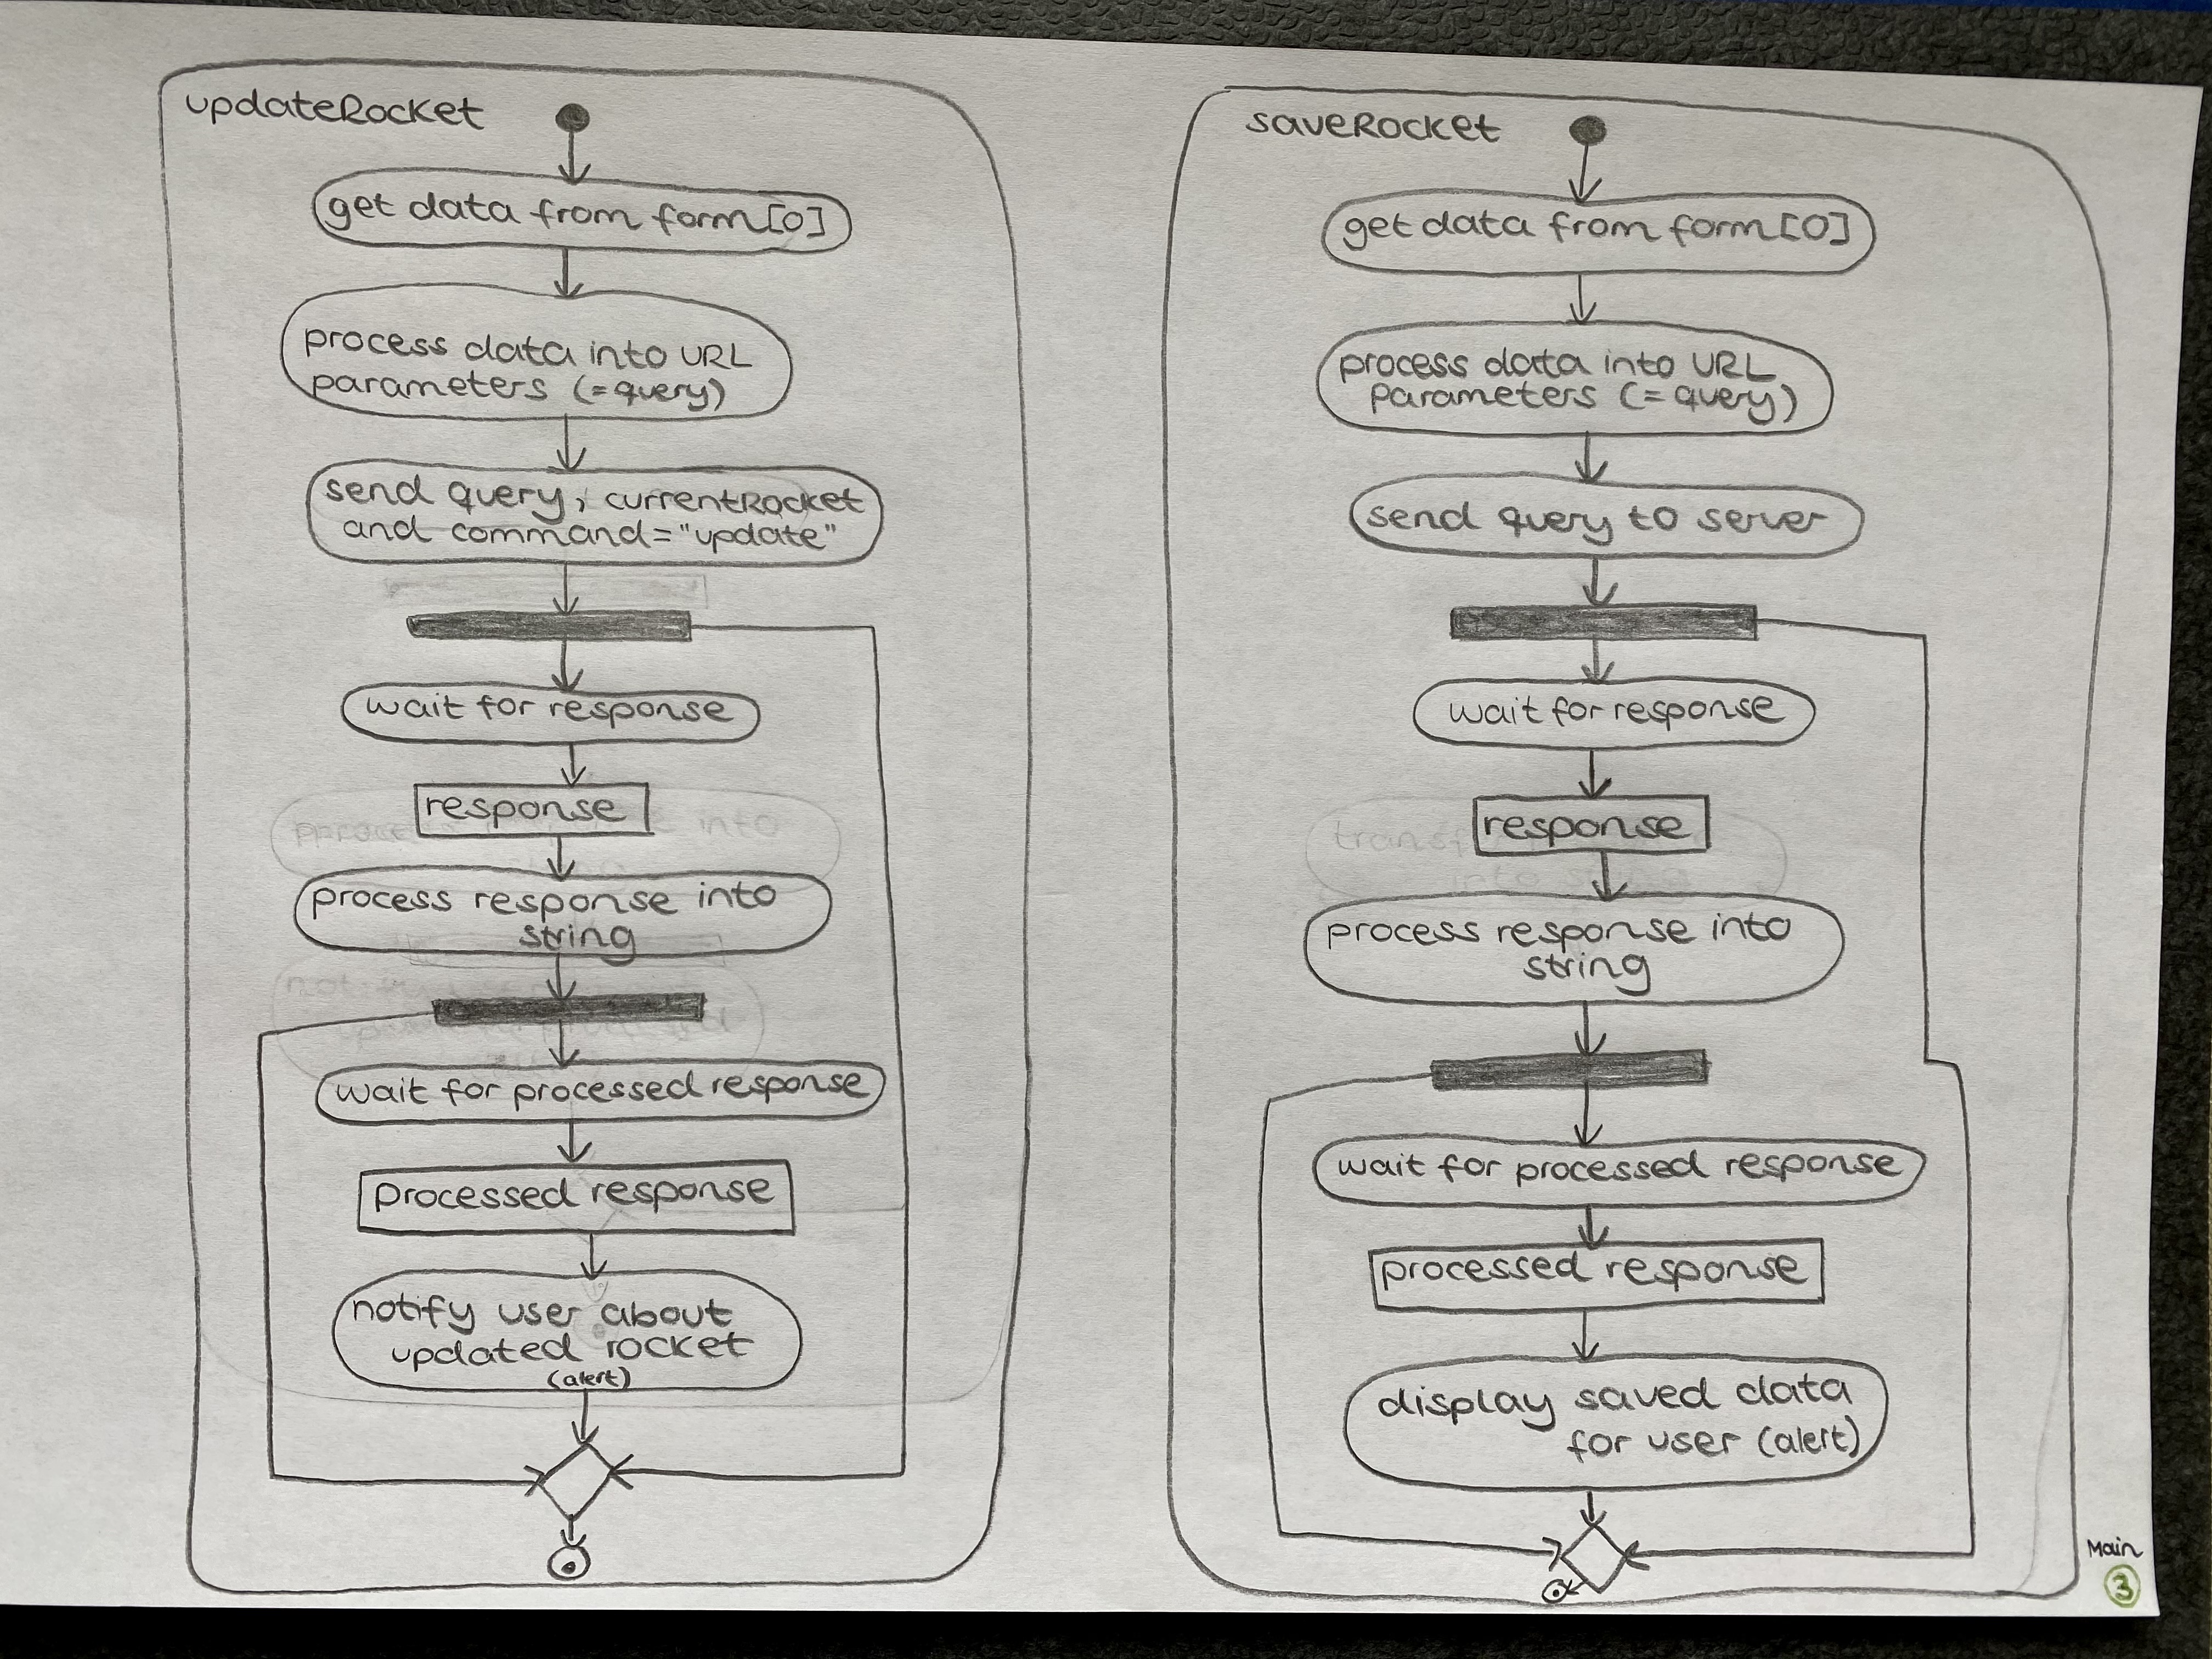 updateRocket
get data from form[0]
process data into URL
parameters (=query)
send query, currentRocket
and command="update"
wait for response
response
process response into
string
wait for processed response
processed response
notify user about
updated rocket
(alert)
saveRocket
get data from form[0]
process data into URL
parameters (=query)
send query to server
wait for response
response
process response into
string
wait for processed response
processed response
display saved data
for user (alert)
Main
3